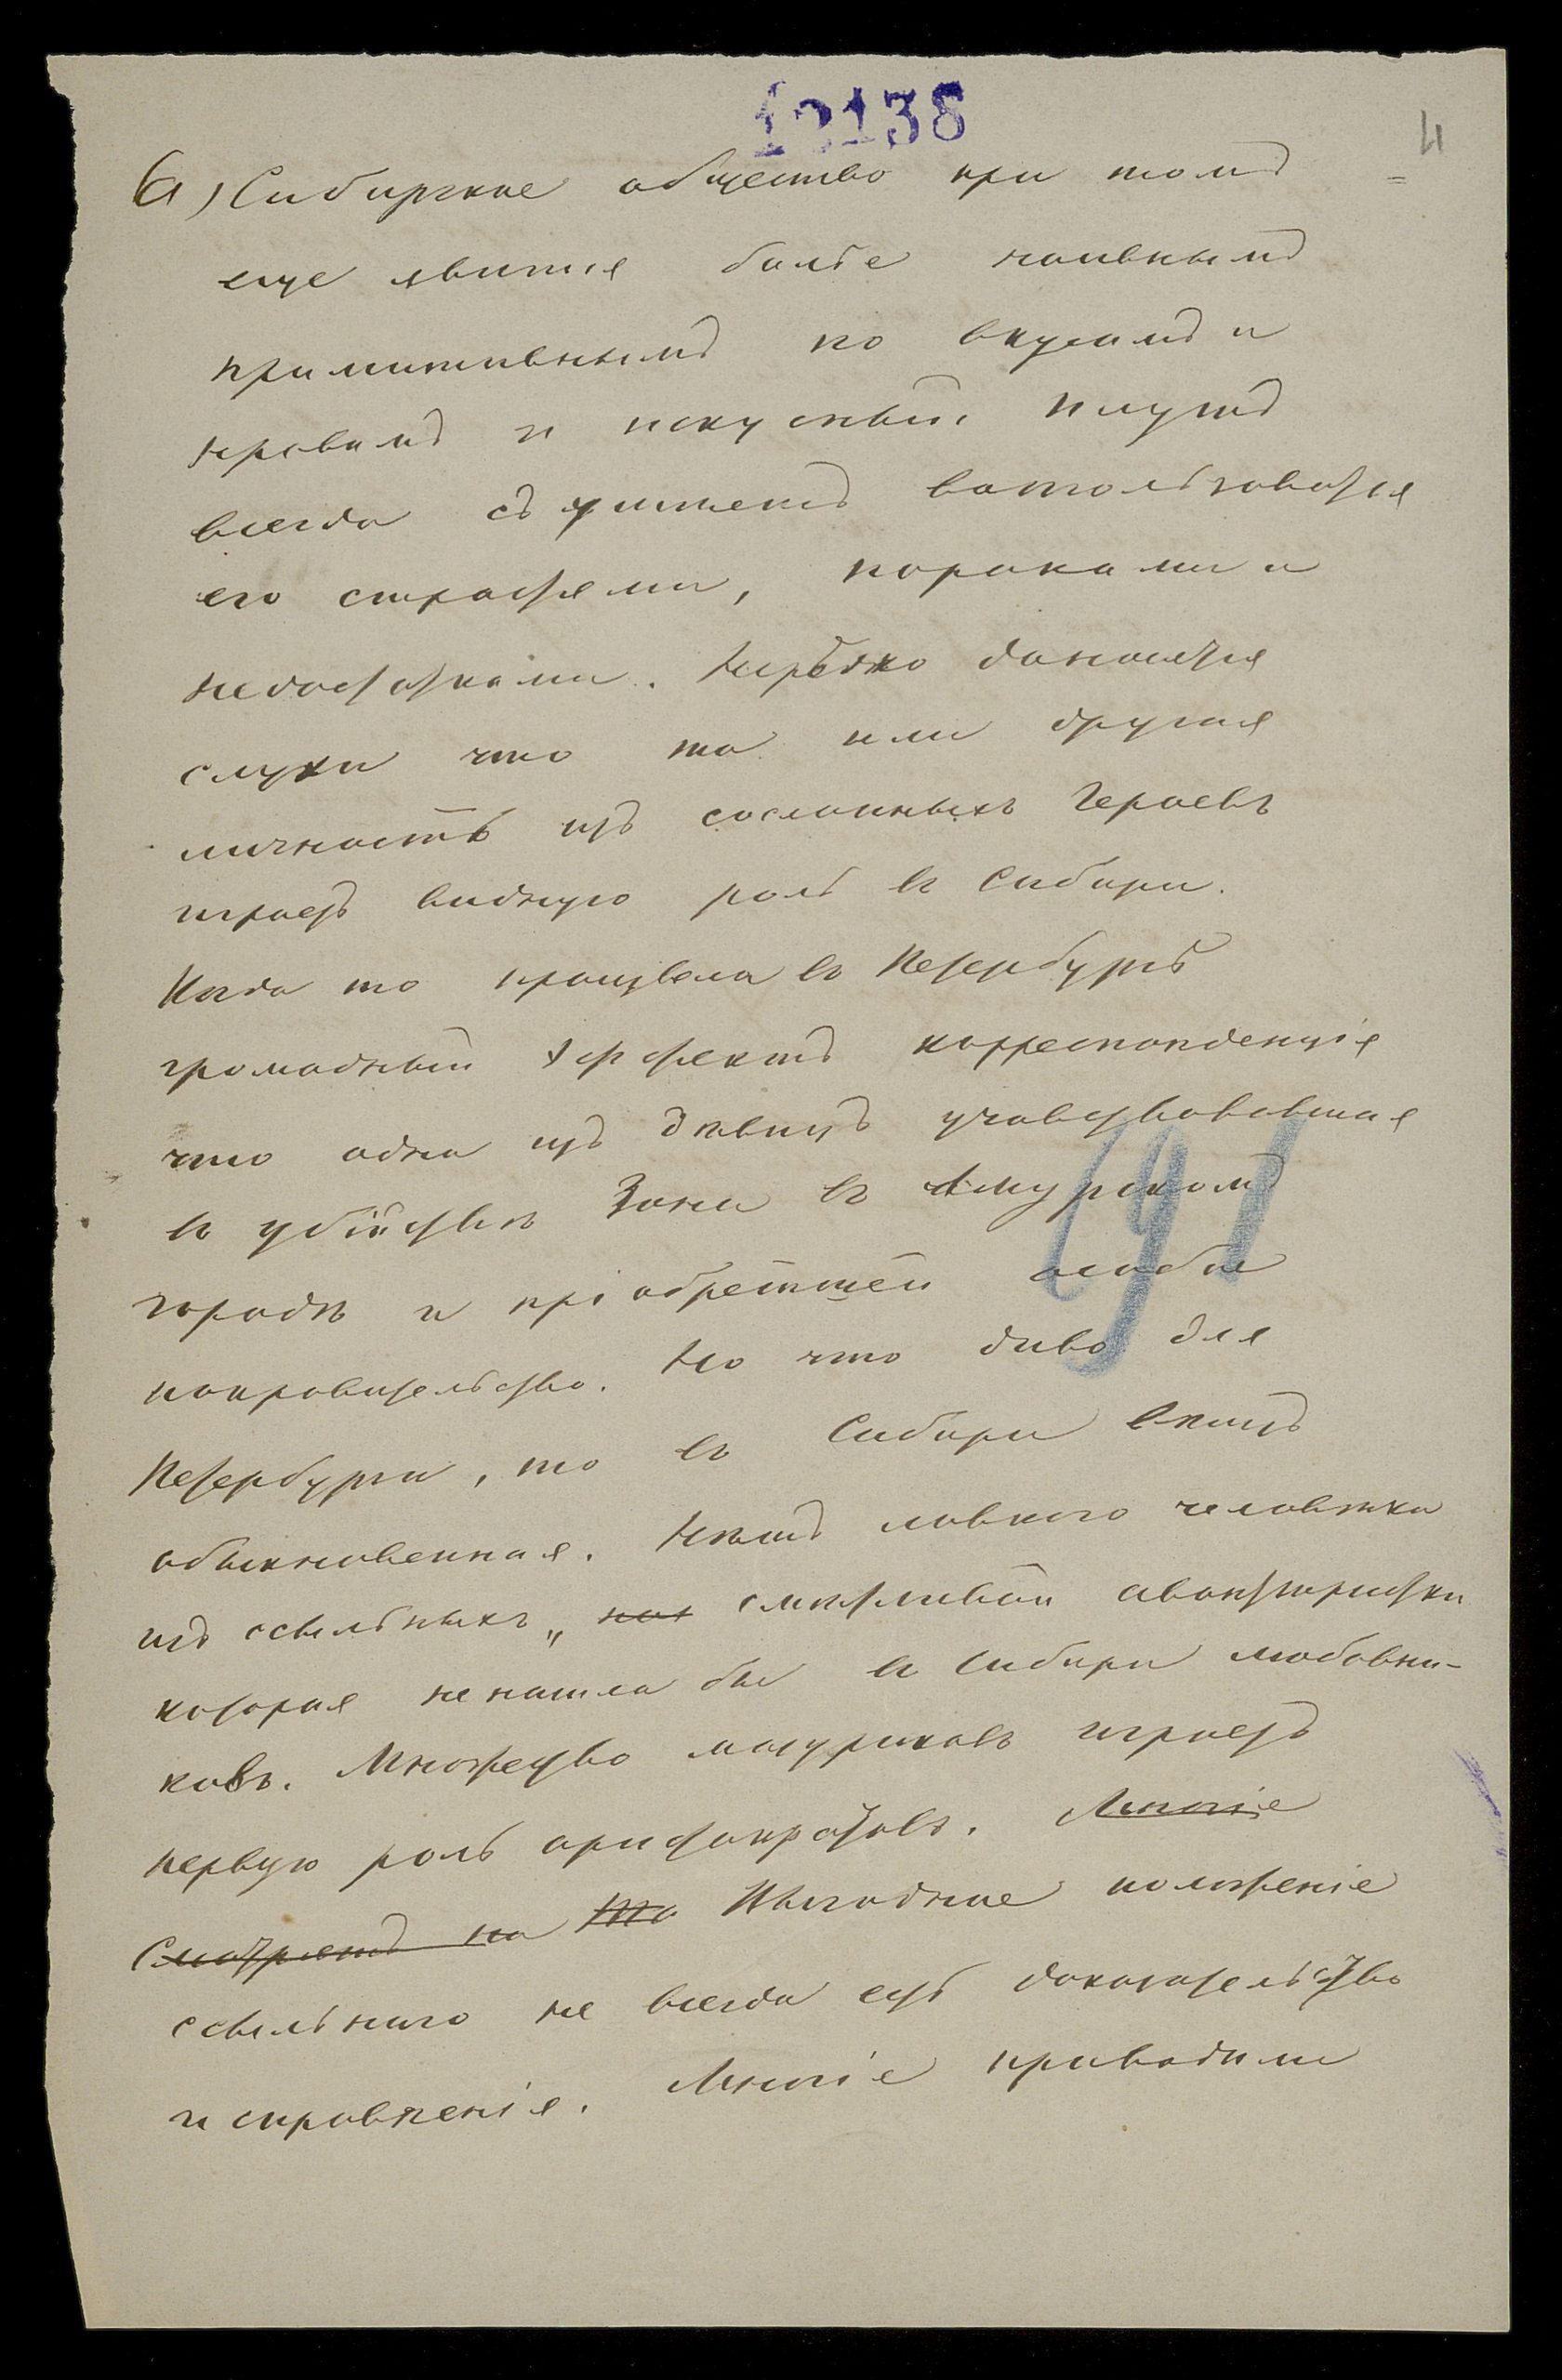 12138
4
6) Сибирское общество при томъ
еще явится болѣе наивнымъ
примитивнымъ по вкусамъ и
нравамъ и искусный плутъ
всегда съумѣетъ воспользоваться
его страстями, пороками и
недостатками. Нерѣдко доносятся
слухи что та или другая
личность изъ сосланныхъ героевъ
играетъ видную роль въ Сибири.
Когда то произвела въ Петербургѣ
громадный эффектъ корреспонденція
что одна изъ дѣвицъ учавствовавшая
въ убійствѣ Зона въ Амурскомъ
городѣ и пріобретшей особое
покровительство. Но что диво для
Петербурга, то въ Сибири вещь
обыкновенная. Нѣтъ ловкого человѣка
изъ ссыльныхъ, смѣтливой авантюристки
которая не нашла бы въ Сибири любовни-
ковъ. Множество мазуриковъ играетъ
первую роль аристократовъ. Многіе
Смотрятъ на то Выгодное положеніе
ссыльнаго не всегда есть доказательство
исправленія. Многіе приводили
191